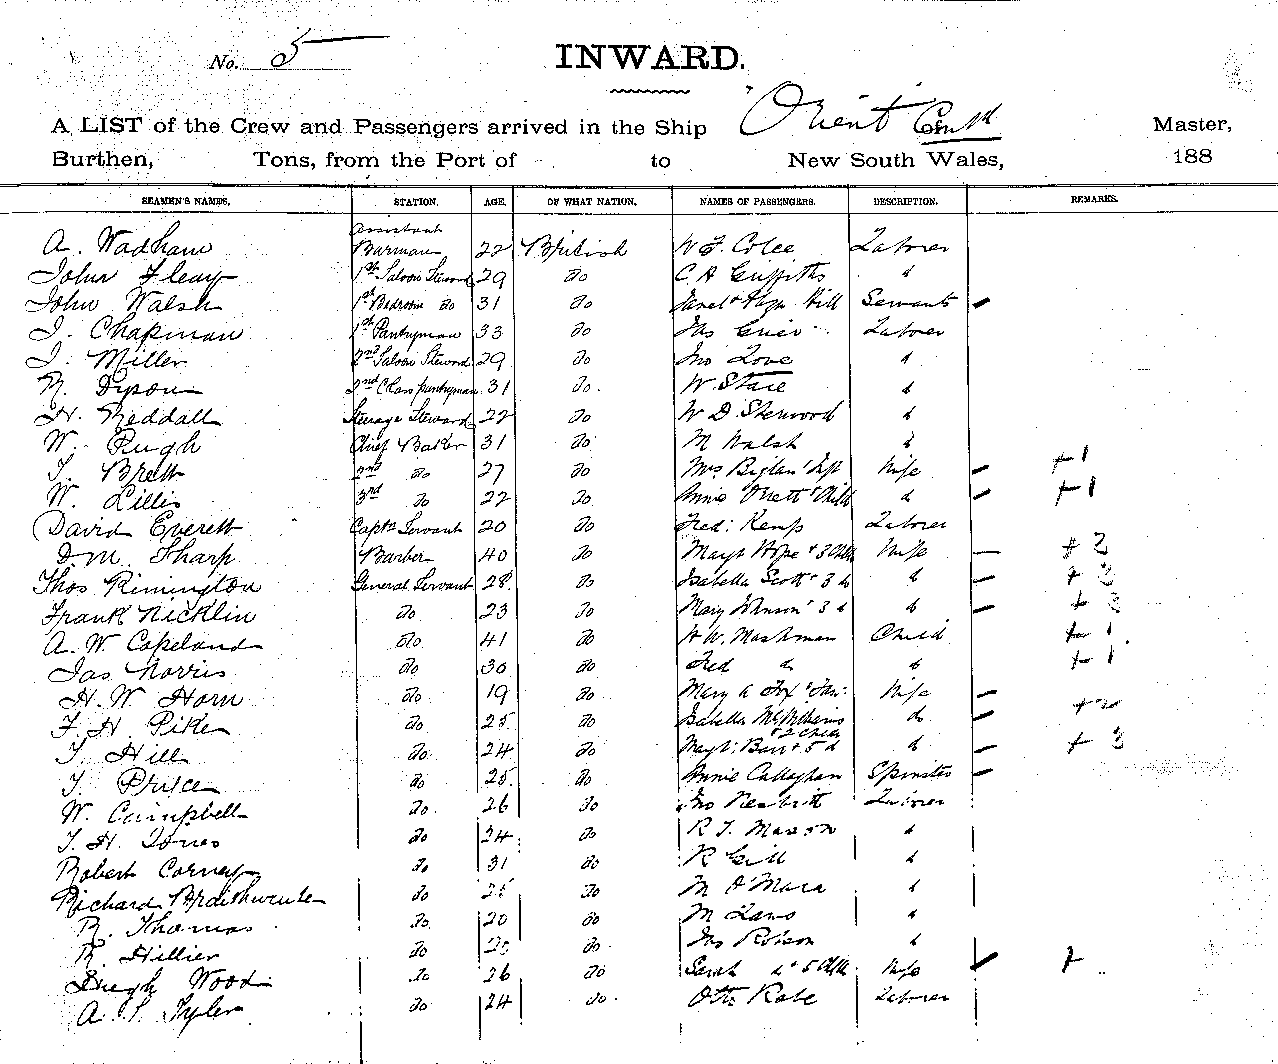 No. 5
INWARD.
A LIST of the Crew and Passengers arrived in the Ship Orient Contd Master,
Burthen, Tons, from the Port of to New South Wales, 188
SEAMEN'S NAMES. STATION. AGE. OF WHAT NATION. NAMES OF PASSENGERS. DESCRIPTION. REMARKS.
Assistant
A. Wadham Barman 22 British W F. Colee Laborer
John Fleay 1st Saloon Steward 29 do C. A Griffiths d
John Walsh 1st Bedroom do 31 do Janet & Hill Servants
J. Chapman 1st Pantryman 33 do Jas Grier Laborer
J. Miller 2nd Saloon Steward 29 do Jno Love d
R. Dyson 2nd Class pantryman 31 do. W. Stace d
H. Reddall Steerage Steward 22 do W D Sherwood d
W. Pugh Chief Baker 31 do M Walsh d
T. Brett 2nd do 27 do Mrs Wife +1
W. Lillis 3rd do 22 do Annie & Child d +1
David Everett Captn Servant 20 do Fred: Kemp Laborer
D. M. Sharp Barber 40 do Margt Hope & 3 Chld Wife + 2
Thos Rimington General Servant 28 do Isabella Scott & 3 d d +
Frank Nicklin do 23 do Mary Johnson & 3 d d +
A. W. Copeland do 41 do H W. Mashman Child + 1.
Jas Norris do 30 do Fred d d + 1
H. W Horn do 19 do Mary A Fox & Wife
F. H. Pike do 25 do Isabella McWilliams do +2
& 2 Chld
T. Hill do 24 do Margt: Barr & 5 d d + 3
T. Price do 25 do Annie Callaghan Spinster
W. Campbell do 26 do Jno Nesbitt Laborer
T. H. Jones do 24 do R T. Maxson d
Robert Corney do 31 do R Gill d
Richard do 25 do M O'Mara d
R. Thomas do 20 do M Laws d
R. Hillier do 20 do Jas Robson d
Hugh Wood do 26 do Sarah do & 5 Chld Wife +
A. S. Tyler do 24 do. Otto Rabe Laborer